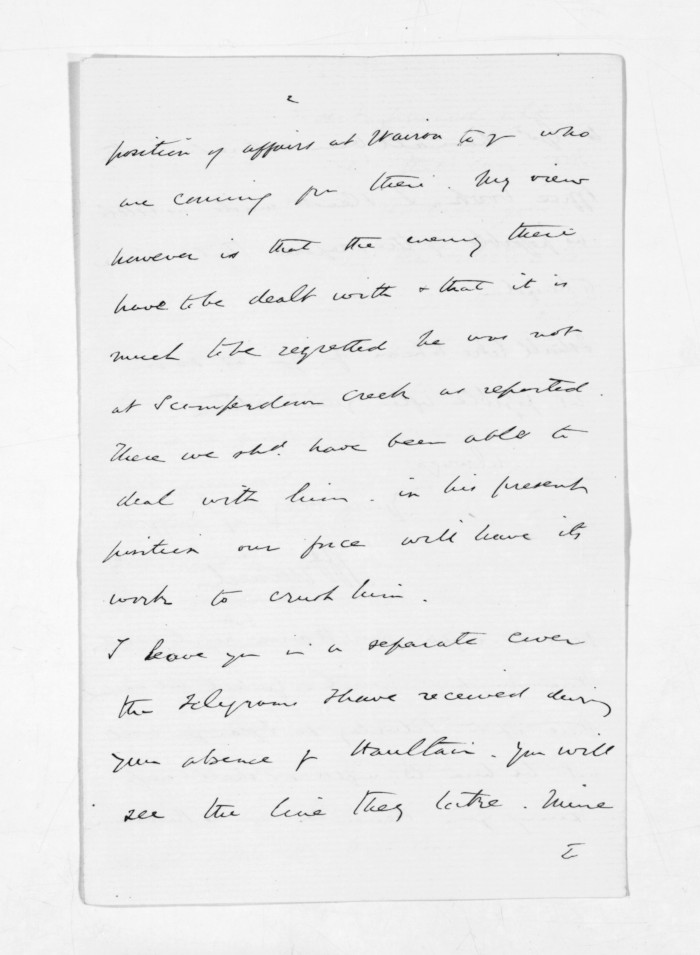 2
position of affairs at Wairoa to y who
are coming fm there. My view
however is that the enemy there
have to be dealt with & that it is
much to be regretted he was not
at Scamperdown Creek as reported.
There we shd. have been able to
deal with him. in his present
position our force will have its
work to crush him.
I leave you in a separate cover
the telegrams I have received during
your absence f Haultain. You will
see the line they take. Mine